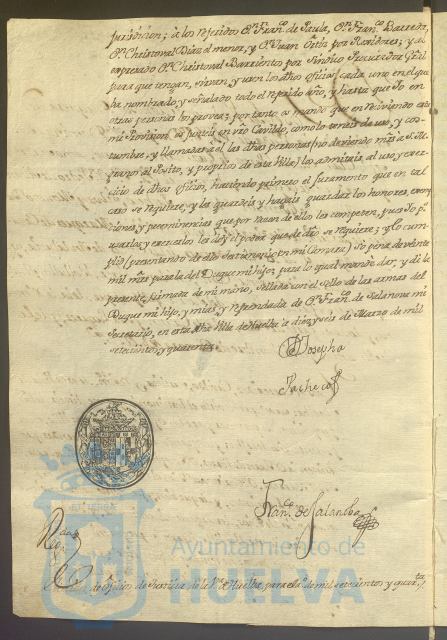 Jurisdicion; à los referidos Dn. Franco. de Paula, Dn. Franco. Barreda,
Dn. Christoval Diaz el menor, y Dn. Juan Ortiz por Rexidores; y al
expresado Dn. Christoval Barrientos por Sindico Procurador Grãl
para que tengan, sirvan, y usen los dhos oficios cada uno en el que
ba nombrado, y señalado todo el referido año, y hasta que Yo en
otras personas los provea; por tanto os mando que en reciviendo esta
mi Provision os junteis en vro Cavildo, como lo teneis de uso, y cos-
tumbre, y llamadas à el las dhas personas (no deviendo mrs à
el Posito, y propios de esa Villa) los admitais al uso y exer-
cicio de dhos oficios, haciendo primero el juramento que en tal
caso se requiere, y les guardeis y hagais guardar los honores, exemp-
ciones, y preeminencias que por razon de ellos les competen, pues Yo pa.
usarlos, y exercerlos les doy el poder que de dro se requiere; y lo cum-
plid (presentando de ello testimonio en mi Camara) so pena de veinte
mil mrs para la del Duque mi hijo; para lo qual mandè dar, y di la
presente, firmada de mi mano, sellada con el sello de las armas del
Duque mi hijo, y mias, y refrendada de Dn. Franco. de Salanova mi
Secretario, en esta dha Villa de Huelva à diez y seis de Marzo de mil
setecientos y quarenta
Josepha
Pacheco
Franco. de Salanoba
de oficios de Justicia de la Va. de Huelva, para el año de mil setecientos y quarta.
Ayuntamiento de
HUELVA